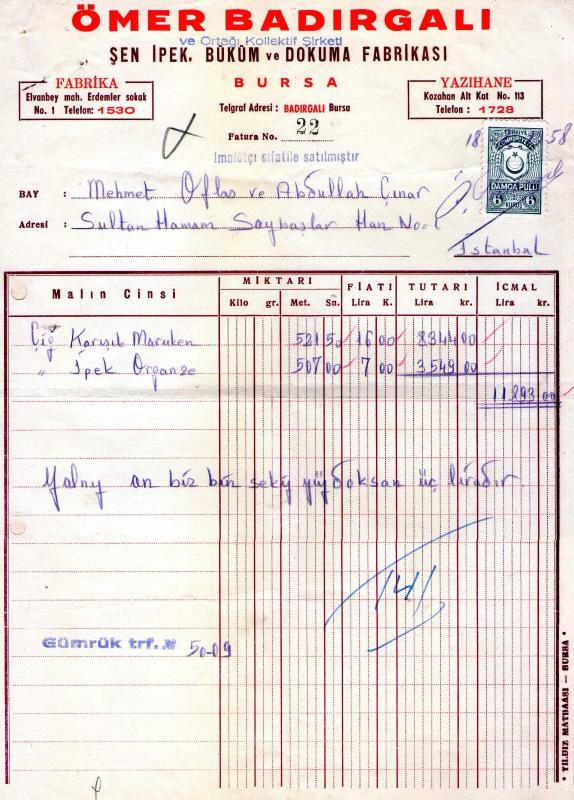 ÖMER BADIRGALI
ve Ortağı Kollektif Şirketi
ŞEN İPEK, BÜKÜM ve DOKUMA FABRİKASI
BURSA
FABRİKA
Elvanbey mah. Erdemler sokak
No. 1 Telefon: 1530
Telgraf Adresi : BADIRGALI Bursa
YAZIHANE
Kozahan Alt Kat No. 113
Telefon : 1728
Fatura No. 22
İmalâtçı sıfatile satılmıştır
18 58
TÜRKİYE
CUMHURİYETİ
DAMGA PULU
6 KURUŞ 6
BAY : Mehmet Oflas ve Abdullah Çınar
Adresi : Sultan Hamam Saybaşlar Han No=
İstanbul
Malın Cinsi MİKTARI FİATI TUTARI İCMAL
Kilo gr. Met. Sn. Lira K. Lira kr. Lira kr.
Çiğ Karışık Maruken 521 50 16 00 8344 00
" İpek Organze 507 00 7 00 3.549 00
11.893 00
Yalnız on bir bin sekiz yüz doksan üç liradır
141
Gümrük trf. № 50-09
* YILDIZ MATBAASI — BURSA *